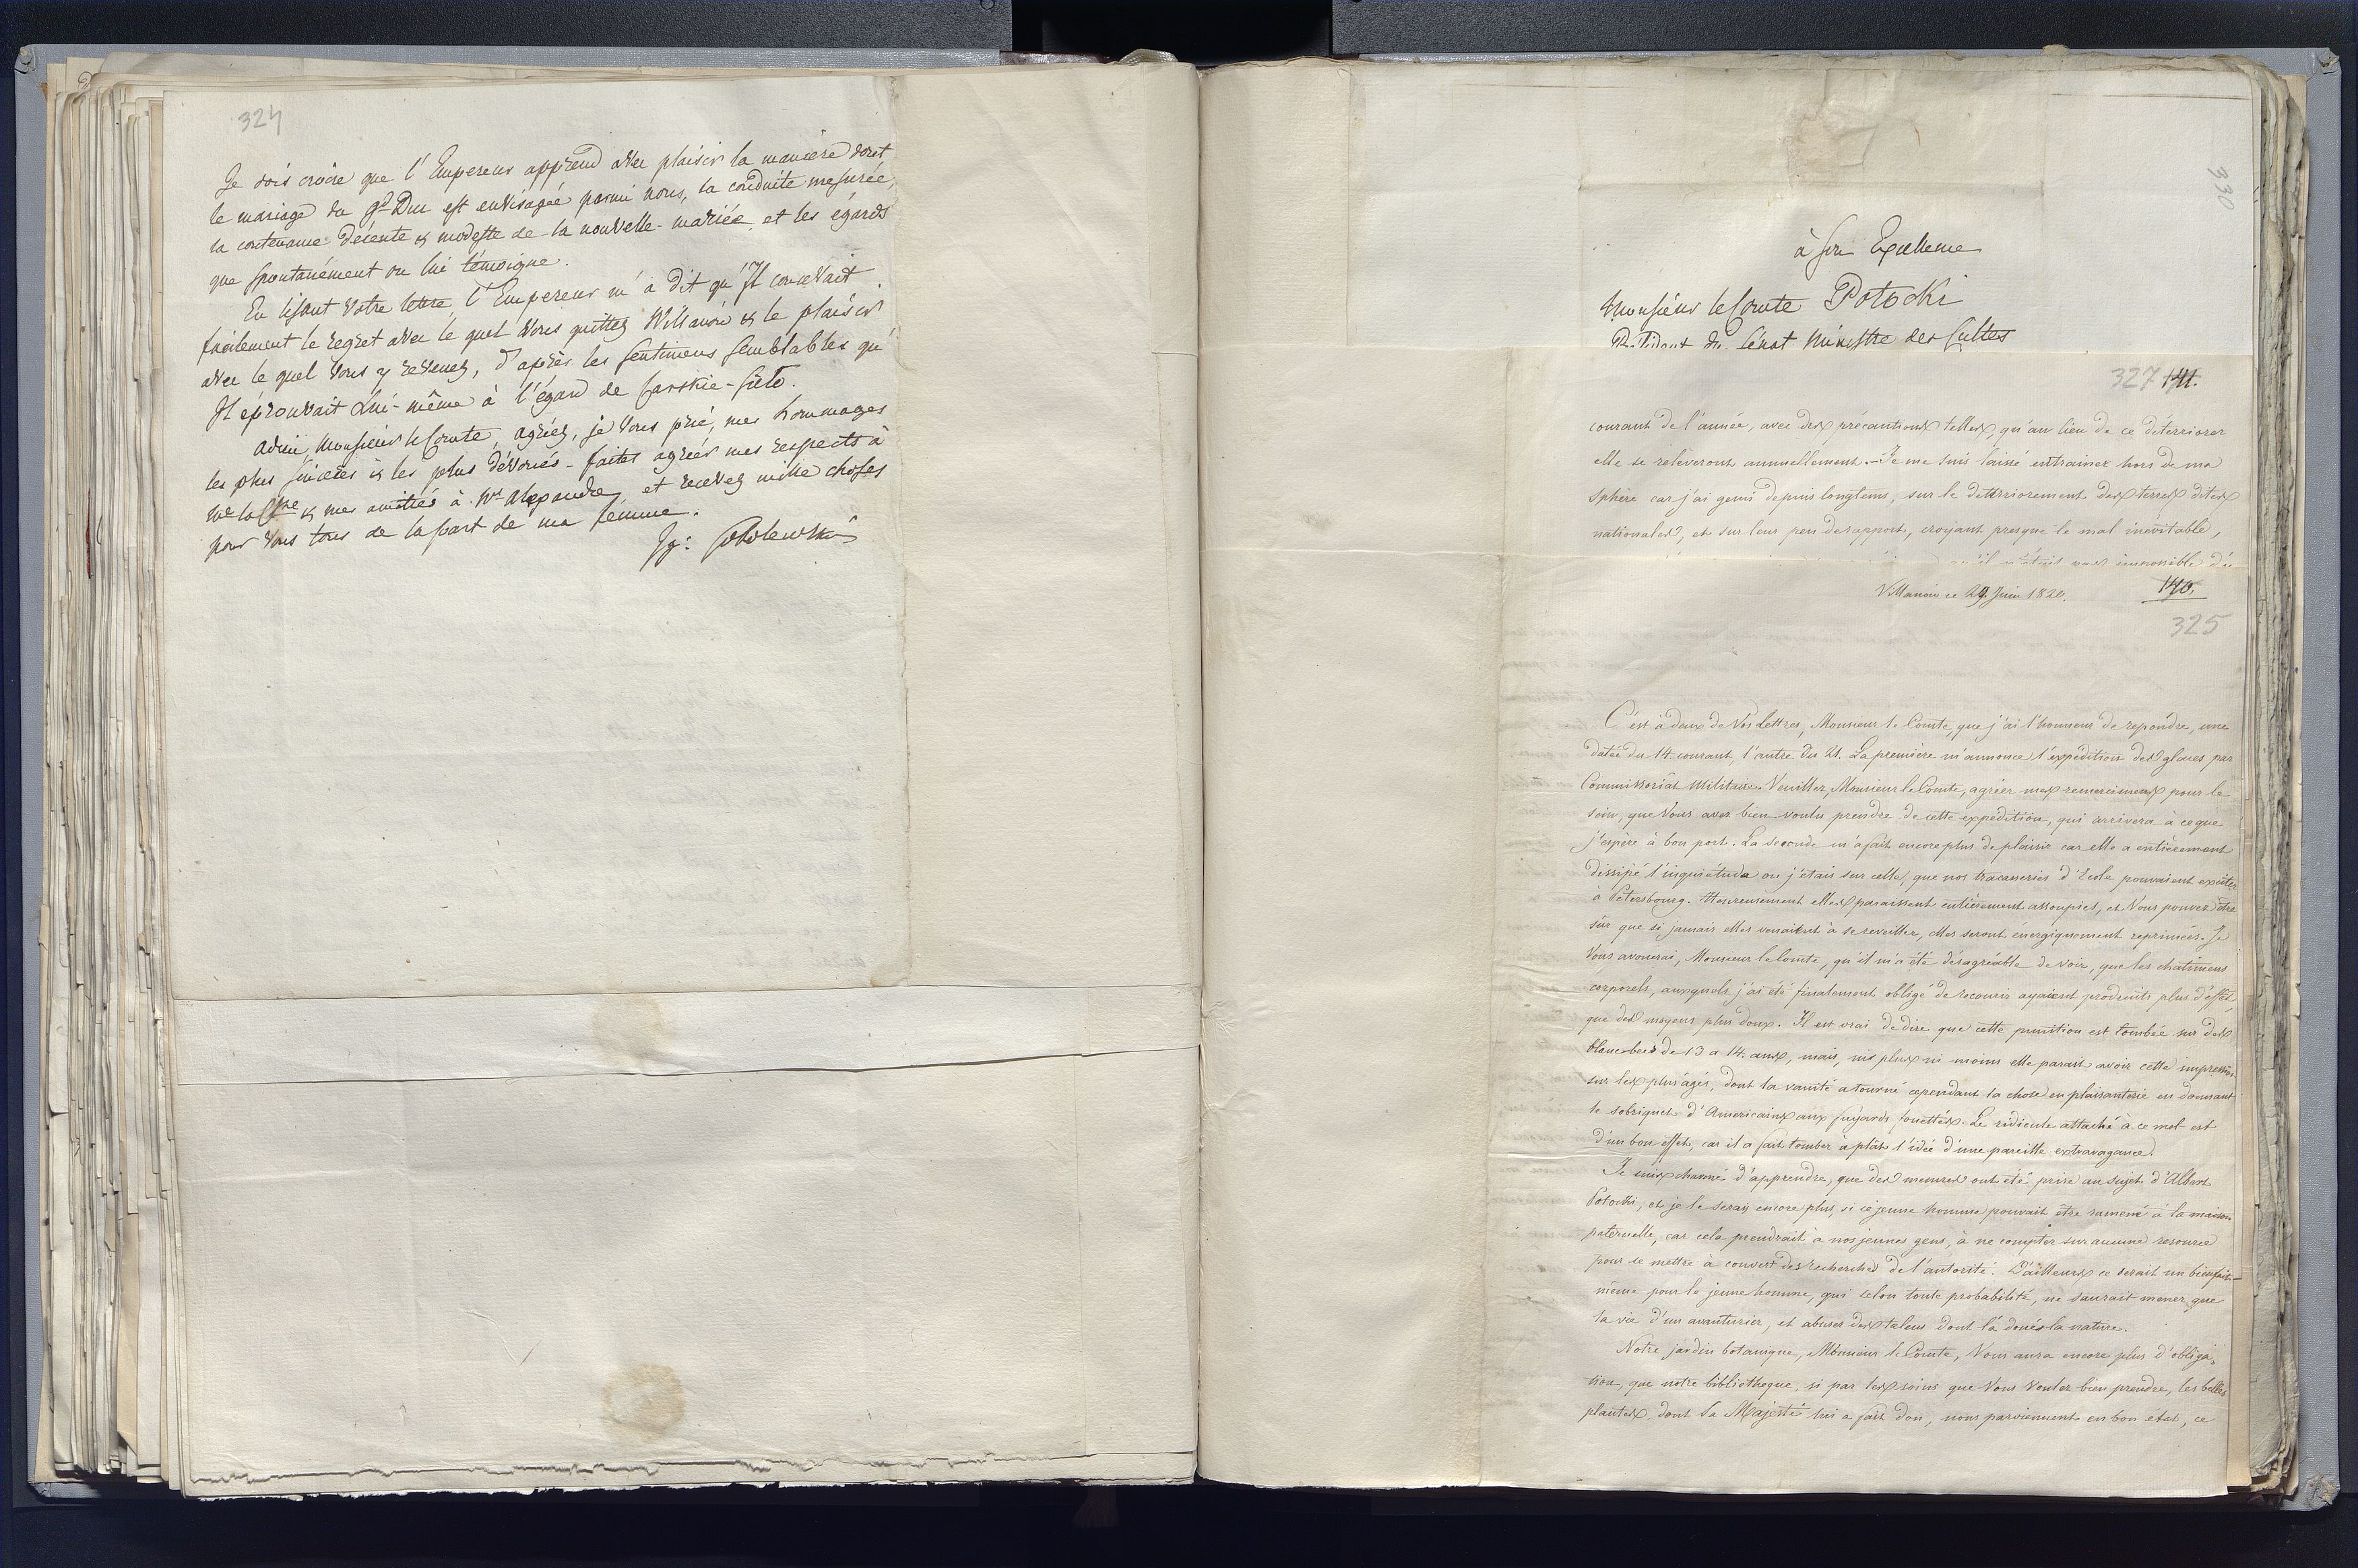 324
Je dois croire que l'Empereur apprend avec plaisir la manière dont
le mariage du gd Duc est envisagée parmi nous, la conduite mesurée,
la contenance décente & modeste de la nouvelle-mariée, et les égards
que spontanément on lui témoigne.
En lisant votre lettre, l'Empereur m'a dit qu'Il concevait
facilement le regret avec le quel vous quittez Willanow & le plaisir
avec le quel vous y revenez, d'après les sentimens semblables qu'
Il éprouvait Lui-même à l'égard de Carskie-Sieło.
Adieu, Monsieur le Comte, agréez, je vous prie, mes hommages
les plus sincères & les plus dévoués - faites agréer mes respects à
Me la Ctsse & mes amitiés à Mr Alexandre, et recevez mille choses
pour vous tous de la part de ma femme.
Ig: Sobolewski
330
à Son Excellence
Monsieur le Comte Potocki
Président du Sénat Ministre des Cultes
327 141.
courant de l'année, avec des précautions telles, qu'au lieu de ce déterriorer
elle se releveront annuellement. - Je me suis laissé entrainer hors de ma
sphère car j'ai gemi depuis longtems, sur le detterriorement des terres dites
nationales, et sur leur peu de rapport, croyant presque le mal inevitable,
qu'il n'étoit pas impossible d'y
Villanow ce 29 Juin 1820.
140.
325
C'est à deux de Vos lettres, Monsieur le Comte, que j'ai l'honneur de repondre, une
datée du 14 courant, l'autre du 21. La première m'annonce l'expédition des glaces par
Commissoriat Militaire. Veuillez, Monsieur le Comte, agréer mes remerciemens pour le
soin, que Vous avez bien voulu prendre de cette expédition, qui arrivera à ce que
j'espère à bon port. La seconde m'a fait encore plus de plaisir car elle a entièrement
dissipé l'inquiétude ou j'étais sur celle, que nos tracasseries d'école pouvaient exciter
à Petersbourg. Heureusement elles paraissent entièrement assoupies, et Vous pouvez être
sûr que si jamais elles venaient à se reveiller, elles seront énergiquement reprimées. Je
Vous avouerai, Monsieur le Comte, qu'il m'a été désagréable de voir, que les châtimens
corporels, auxquels j'ai été finalement obligé de recourir ayaient produits plus d'effet,
que des moyens plus doux. Il est vrai de dire que cette punition est tombée sur des
blanc-becs de 13 a 14. ans, mais, nis plus ni moins elle parait avoir cette impression
sur les plus agés, dont la vanité a tourné cependant la chose en plaisanterie en donnant
le sobriquet d'Americains aux fuyards fouettés. Le ridicule attaché à ce mot est
d'un bon effet, car il a fait tomber à plat l'idée d'une pareille extravagance.
Je suis charmé d'apprendre, que des mesures ont été prise au sujet d'Albert
Potocki, et je le serais encore plus, si ce jeune homme pouvait être ramené à la maison
paternelle, car cela prendrait à nos jeunes gens, à ne compter sur aucune resource
pour se mettre à couvert des recherches de l'autorité. D'ailleurs ce serait un bienfait
même pour le jeune homme, qui selon toute probabilité, ne saurait mener que
la vie d'un avanturier, et abuser des talens dont l'a doués la nature.
Notre jardin botanique, Monsieur le Comte, Vous aura encore plus d'obliga-
tion, que notre bibliotheque, si par les soins que Vous voulez bien prendre, les belles
plantes, dont Sa Majesté lui a fait don, nous parviennent en bon état, ce